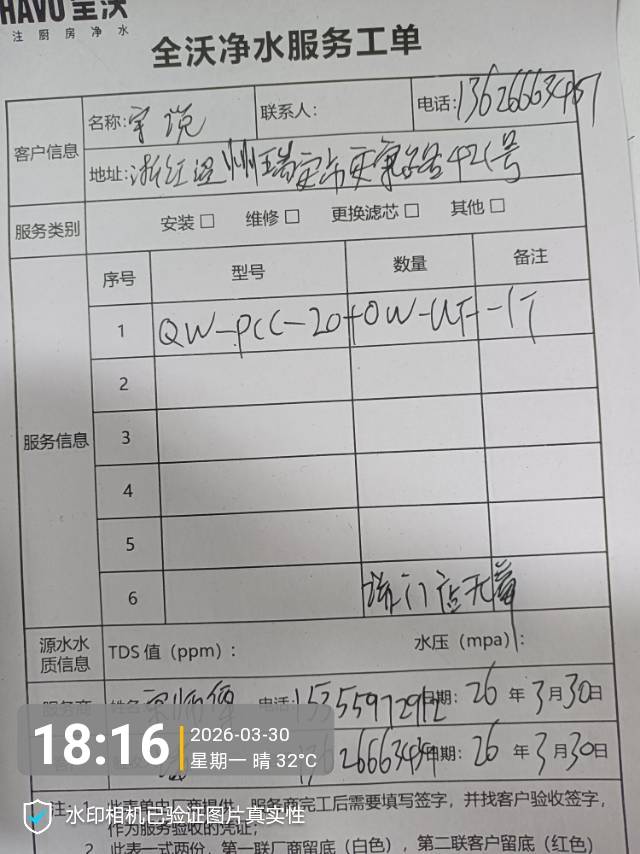 HAVO 全沃
注厨房净水
全沃净水服务工单
客户信息
名称: 联系人: 电话:
地址:浙江温州瑞安市 421号
服务类别 安装□ 维修□ 更换滤芯□ 其他□
服务信息
序号 型号 数量 备注
1 QW-PCC-20+QW-UF-1T
2
3
4
5
6
源水水质信息
TDS 值（ppm）: 水压（mpa）:
服务商 姓名 电话: 日期: 26 年 3 月 30 日
日期: 26 年 3 月 30 日
18:16
2026-03-30
星期一 晴 32℃
水印相机已验证图片真实性
注: 1、此表单由厂商提供，服务商完工后需要填写签字，并找客户验收签字，
作为服务验收的凭证；
2、此表一式两份，第一联厂商留底（白色），第二联客户留底（红色）